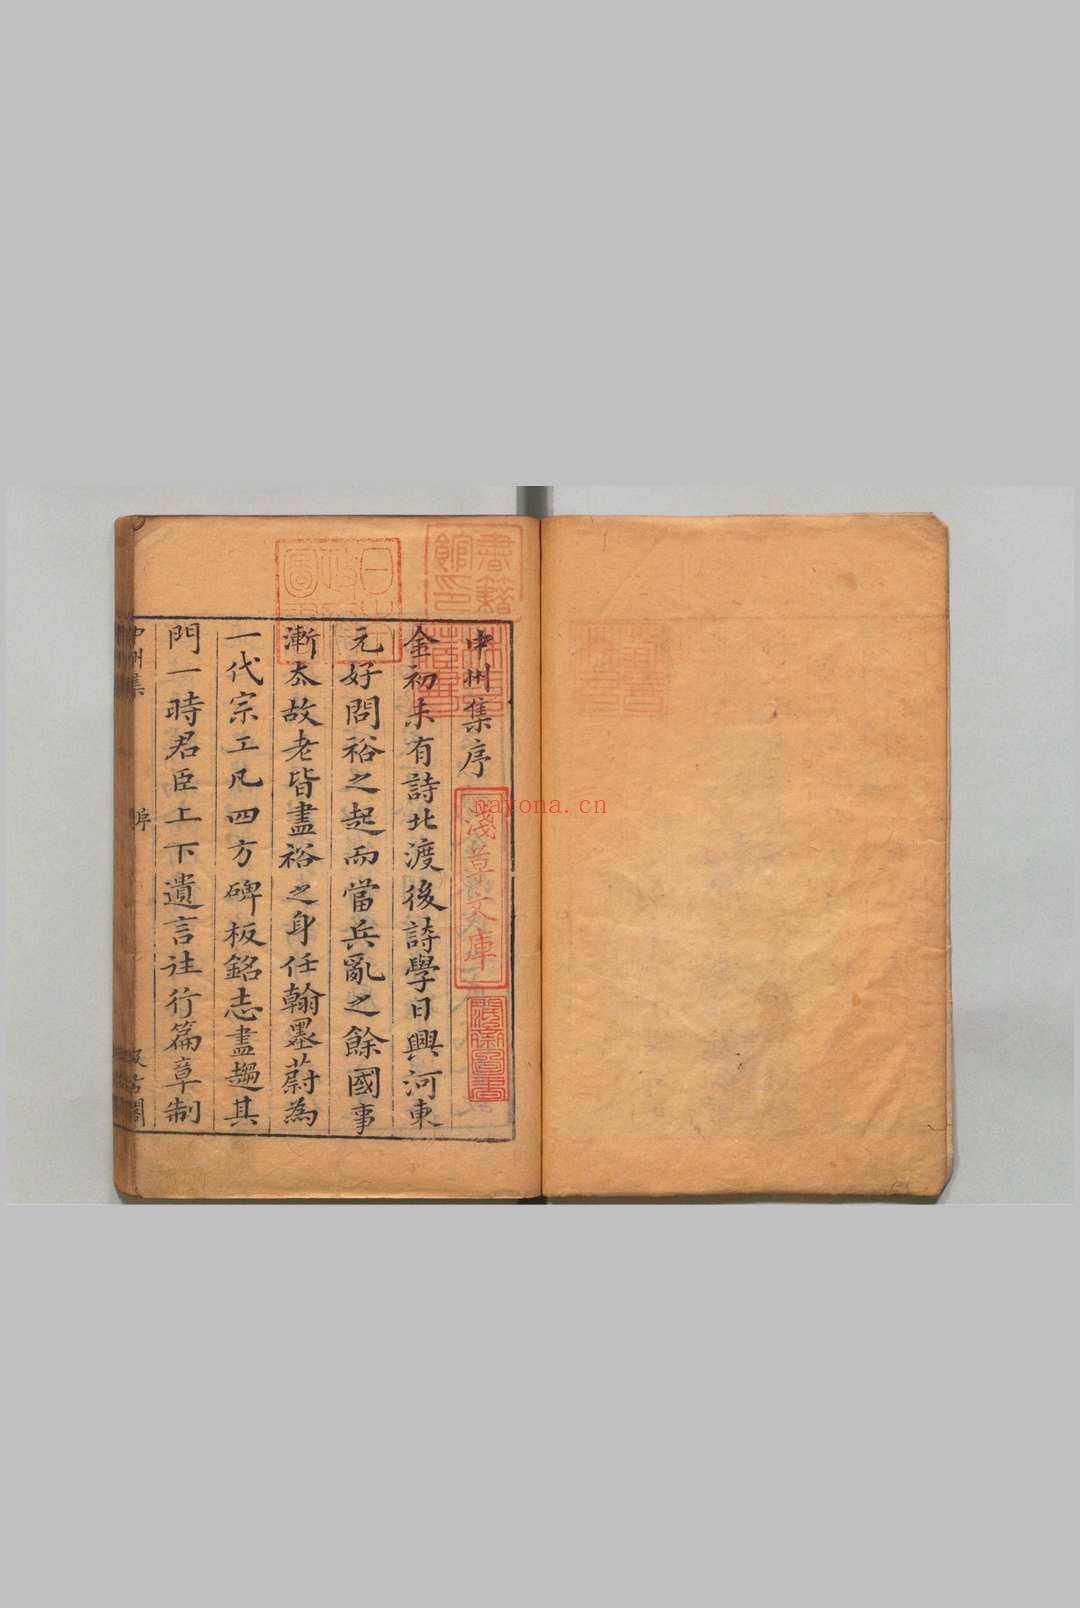 中州集序
金初未有詩北渡後詩學日興河東
元好問裕之起而當兵亂之餘國事
漸夳故老皆盡裕之身任翰墨蔚為
一代宗工凡四方碑板銘志盡趨其
門一時君臣上下遺言往行篇章制
中州集
序
汲古閣
書籍館印
淺草文庫
nayona.cn